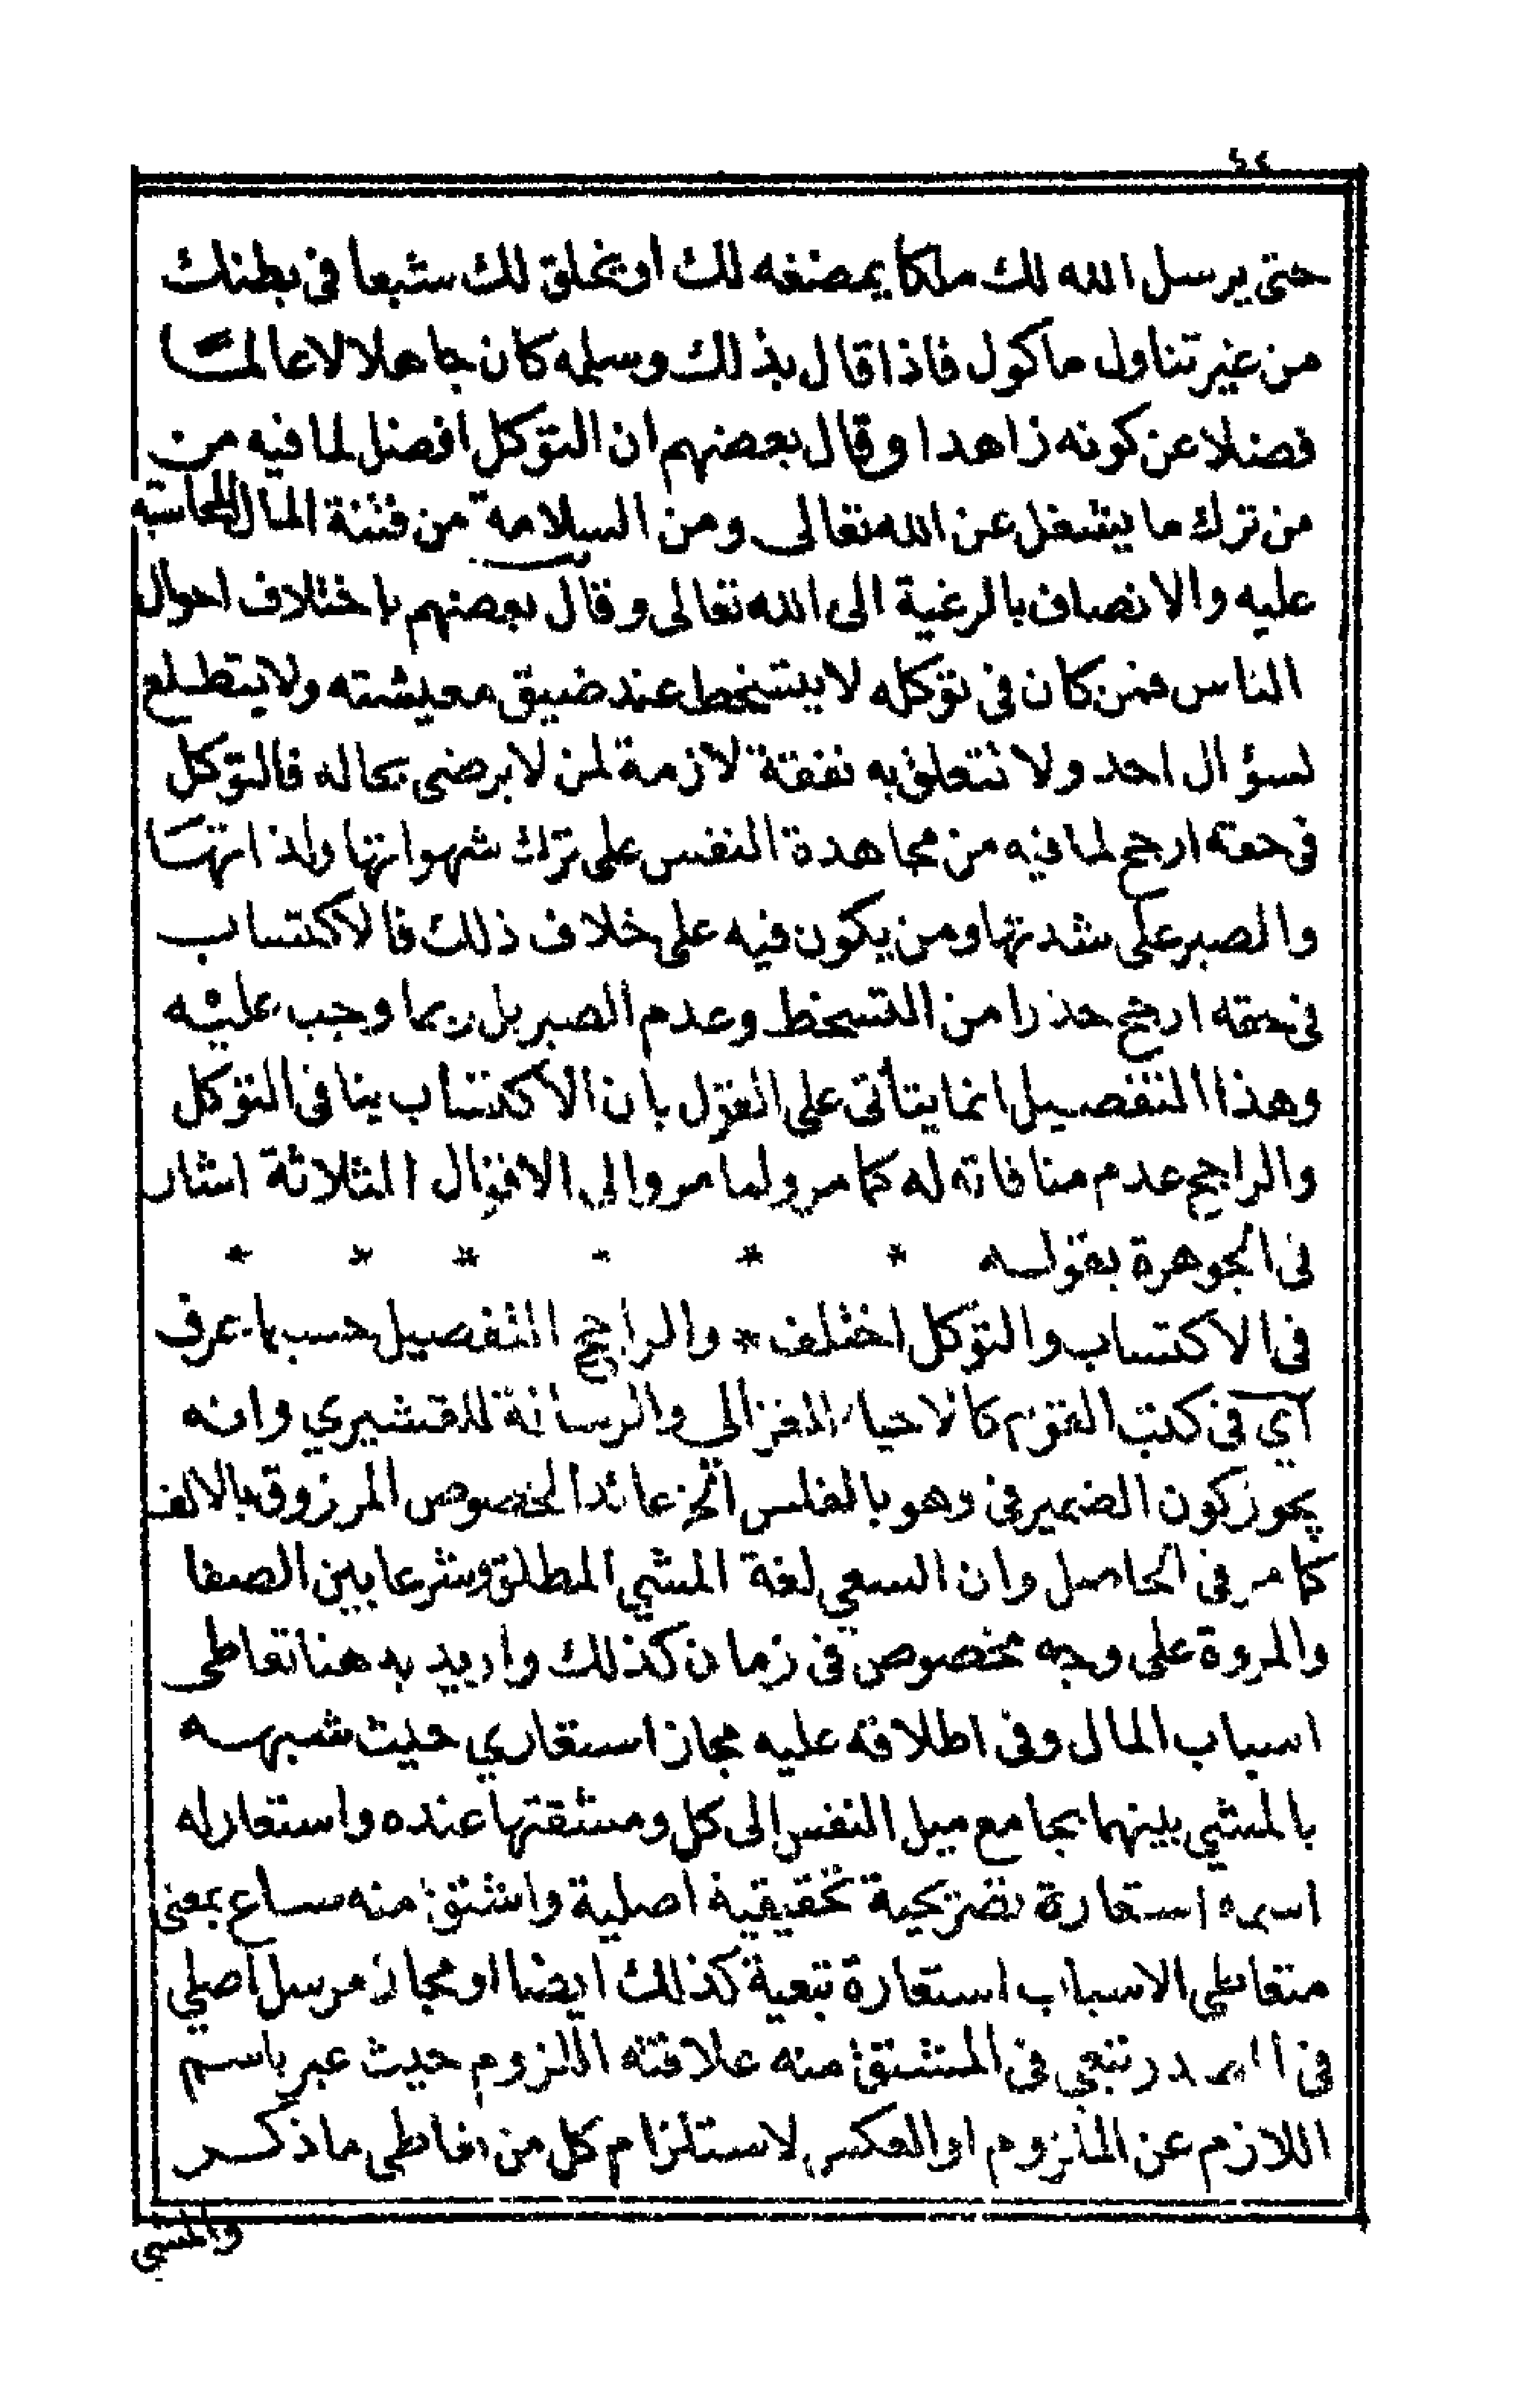 ٤٤
حتى يرسل الله لك ملكا يمضغه لك او يخلق لك شبعا فى بطنك
من غير تناول ماكول فاذا قال بذلك وسلمه كان جاهلا لا عالمـا
فضلا عن كونه زاهدا وقال بعضهم ان التوكل افضل لما فيه من
من ترك ما يشغل عن الله تعالى ومن السلامة من فتنة المال والمحاسبة
عليه والاتصاف بالرغبة الى الله تعالى وقال بعضهم باختلاف احوال
الناس فمن كان فى توكله لا يتسخط عند ضيق معيشته ولا يتطلع
لسؤال احد ولا تتعلق به نفقة لازمة لمن لا يرضى بحاله فالتوكل
فى حقه ارجح لما فيه من مجاهدة النفس على ترك شهواتها ولذاتهـا
والصبر على شدتها ومن يكون فيه على خلاف ذلك فالاكتساب
فى حقه ارجح حذرا من التسخط وعدم الصبر بل ربما وجب عليه
وهذا التفصيل انما يتأتى على القول بان الاكتساب ينافى التوكل
والراجح عدم منافاته له كما مر ولما مر والى الاقوال الثلاثة اشار
فى الجوهرة بقولـه * * * - * *
فى الاكتساب والتوكل اختلف * والراجح التفصيل حسبما عرف
آي فى كتب القوم كالاحياء للغزالي والرسالة للقشيري وانه
يجوز كون الضمير فى وهو بالفلس الخ عائدا لخصوص المرزوق بالالف
كما مر فى الحاصل وان السعي لغة المشي المطلق وشرعا بين الصفا
والمروة على وجه مخصوص فى زمان كذلك واريد به هنا تعاطى
اسباب المال وفى اطلاقه عليه مجاز استعاري حيث شبهـه
بالمشي بينهما بجامع ميل النفس الى كل ومشقتها عنده واستعار له
اسمه استعارة تصريحية تحقيقية اصلية واشتق منه ساع بمعنى
متعاطى الاسباب استعارة تبعية كذلك ايضا او مجاز مرسل اصلي
فى المصدر تبعي فى المشتق منه علاقته اللزوم حيث عبر باسم
اللازم عن الملزوم او العكس لاستلزام كل من تعاطى ما ذكـر
والمشي